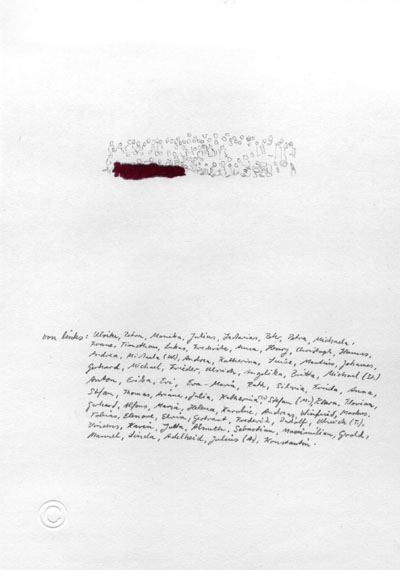 von links: Ulrike, Petra, Monika, Julius, Zacharias, Peter, Petra, Michaela,
Timotheus, Lukas, Friederike, Anna, Henry, Christoph, Hannes,
Andrea, Michaela (W), Andrea, Katharina, Luise, Markus, Johannes,
Gerhard, Michael, Frieder, Ulrich, Angelika, Britta, Michael (Z.)
Anton, Erika, Evi, Eva-Maria, Ruth, Silvia, Frieda, Anna,
Stefan, Thomas, Ariane, Julia, Katharina, Stefan (Mi.), Florian,
Gerhard, Alfons, Maria, Helena, Karoline, Andreas, Winfried, Markus,
Tobias, Eleonore, Gertraud, Frederik, Rudolf, Ulrich (T.),
Vinzenz, Karin, Jutta, Almuth, Sebastian, Maximilian,
Manuel, Linda, Adelheid, Julius (A), Konstantin.
©